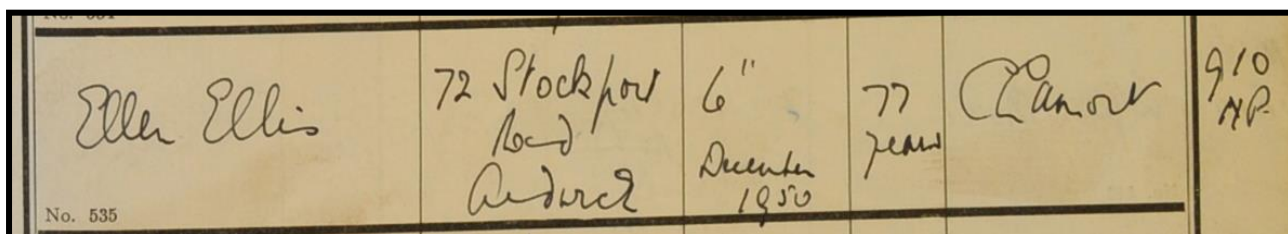 Ellen Ellis
72 Stockport
Road
Ardwick
6"
December
1950
77
years
910
No. 535